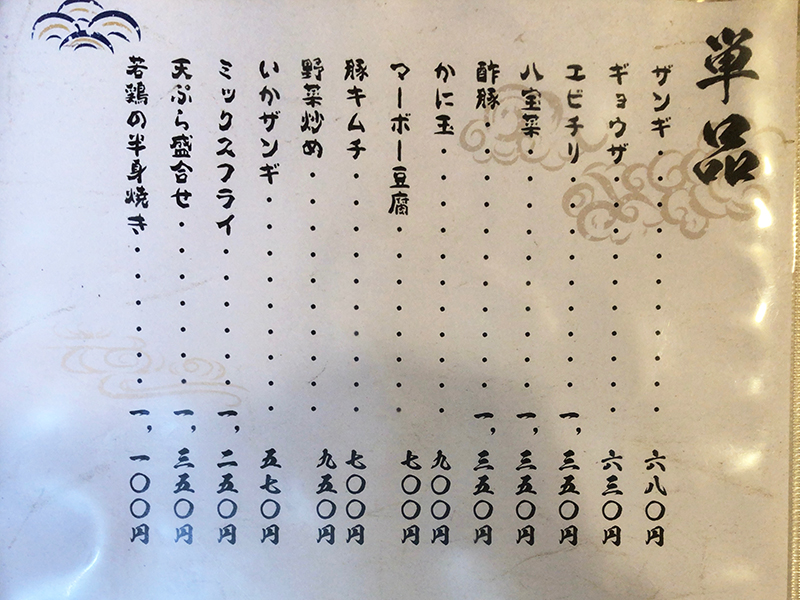 単品
ザンギ・・・・・・・・・・・六八〇円
ギョウザ・・・・・・・・・・六三〇円
エビチリ・・・・・・・・・一、三五〇円
八宝菜・・・・・・・・・・一、三五〇円
酢豚・・・・・・・・・・・・一、三五〇円
かに玉・・・・・・・・・・・九〇〇円
マーボー豆腐・・・・・・・・七〇〇円
豚キムチ・・・・・・・・・・七〇〇円
野菜炒め・・・・・・・・・・九五〇円
いかザンギ・・・・・・・・・五七〇円
ミックスフライ・・・・・・一、二五〇円
天ぷら盛合せ・・・・・・・一、三五〇円
若鶏の半身焼き・・・・・・一、一〇〇円